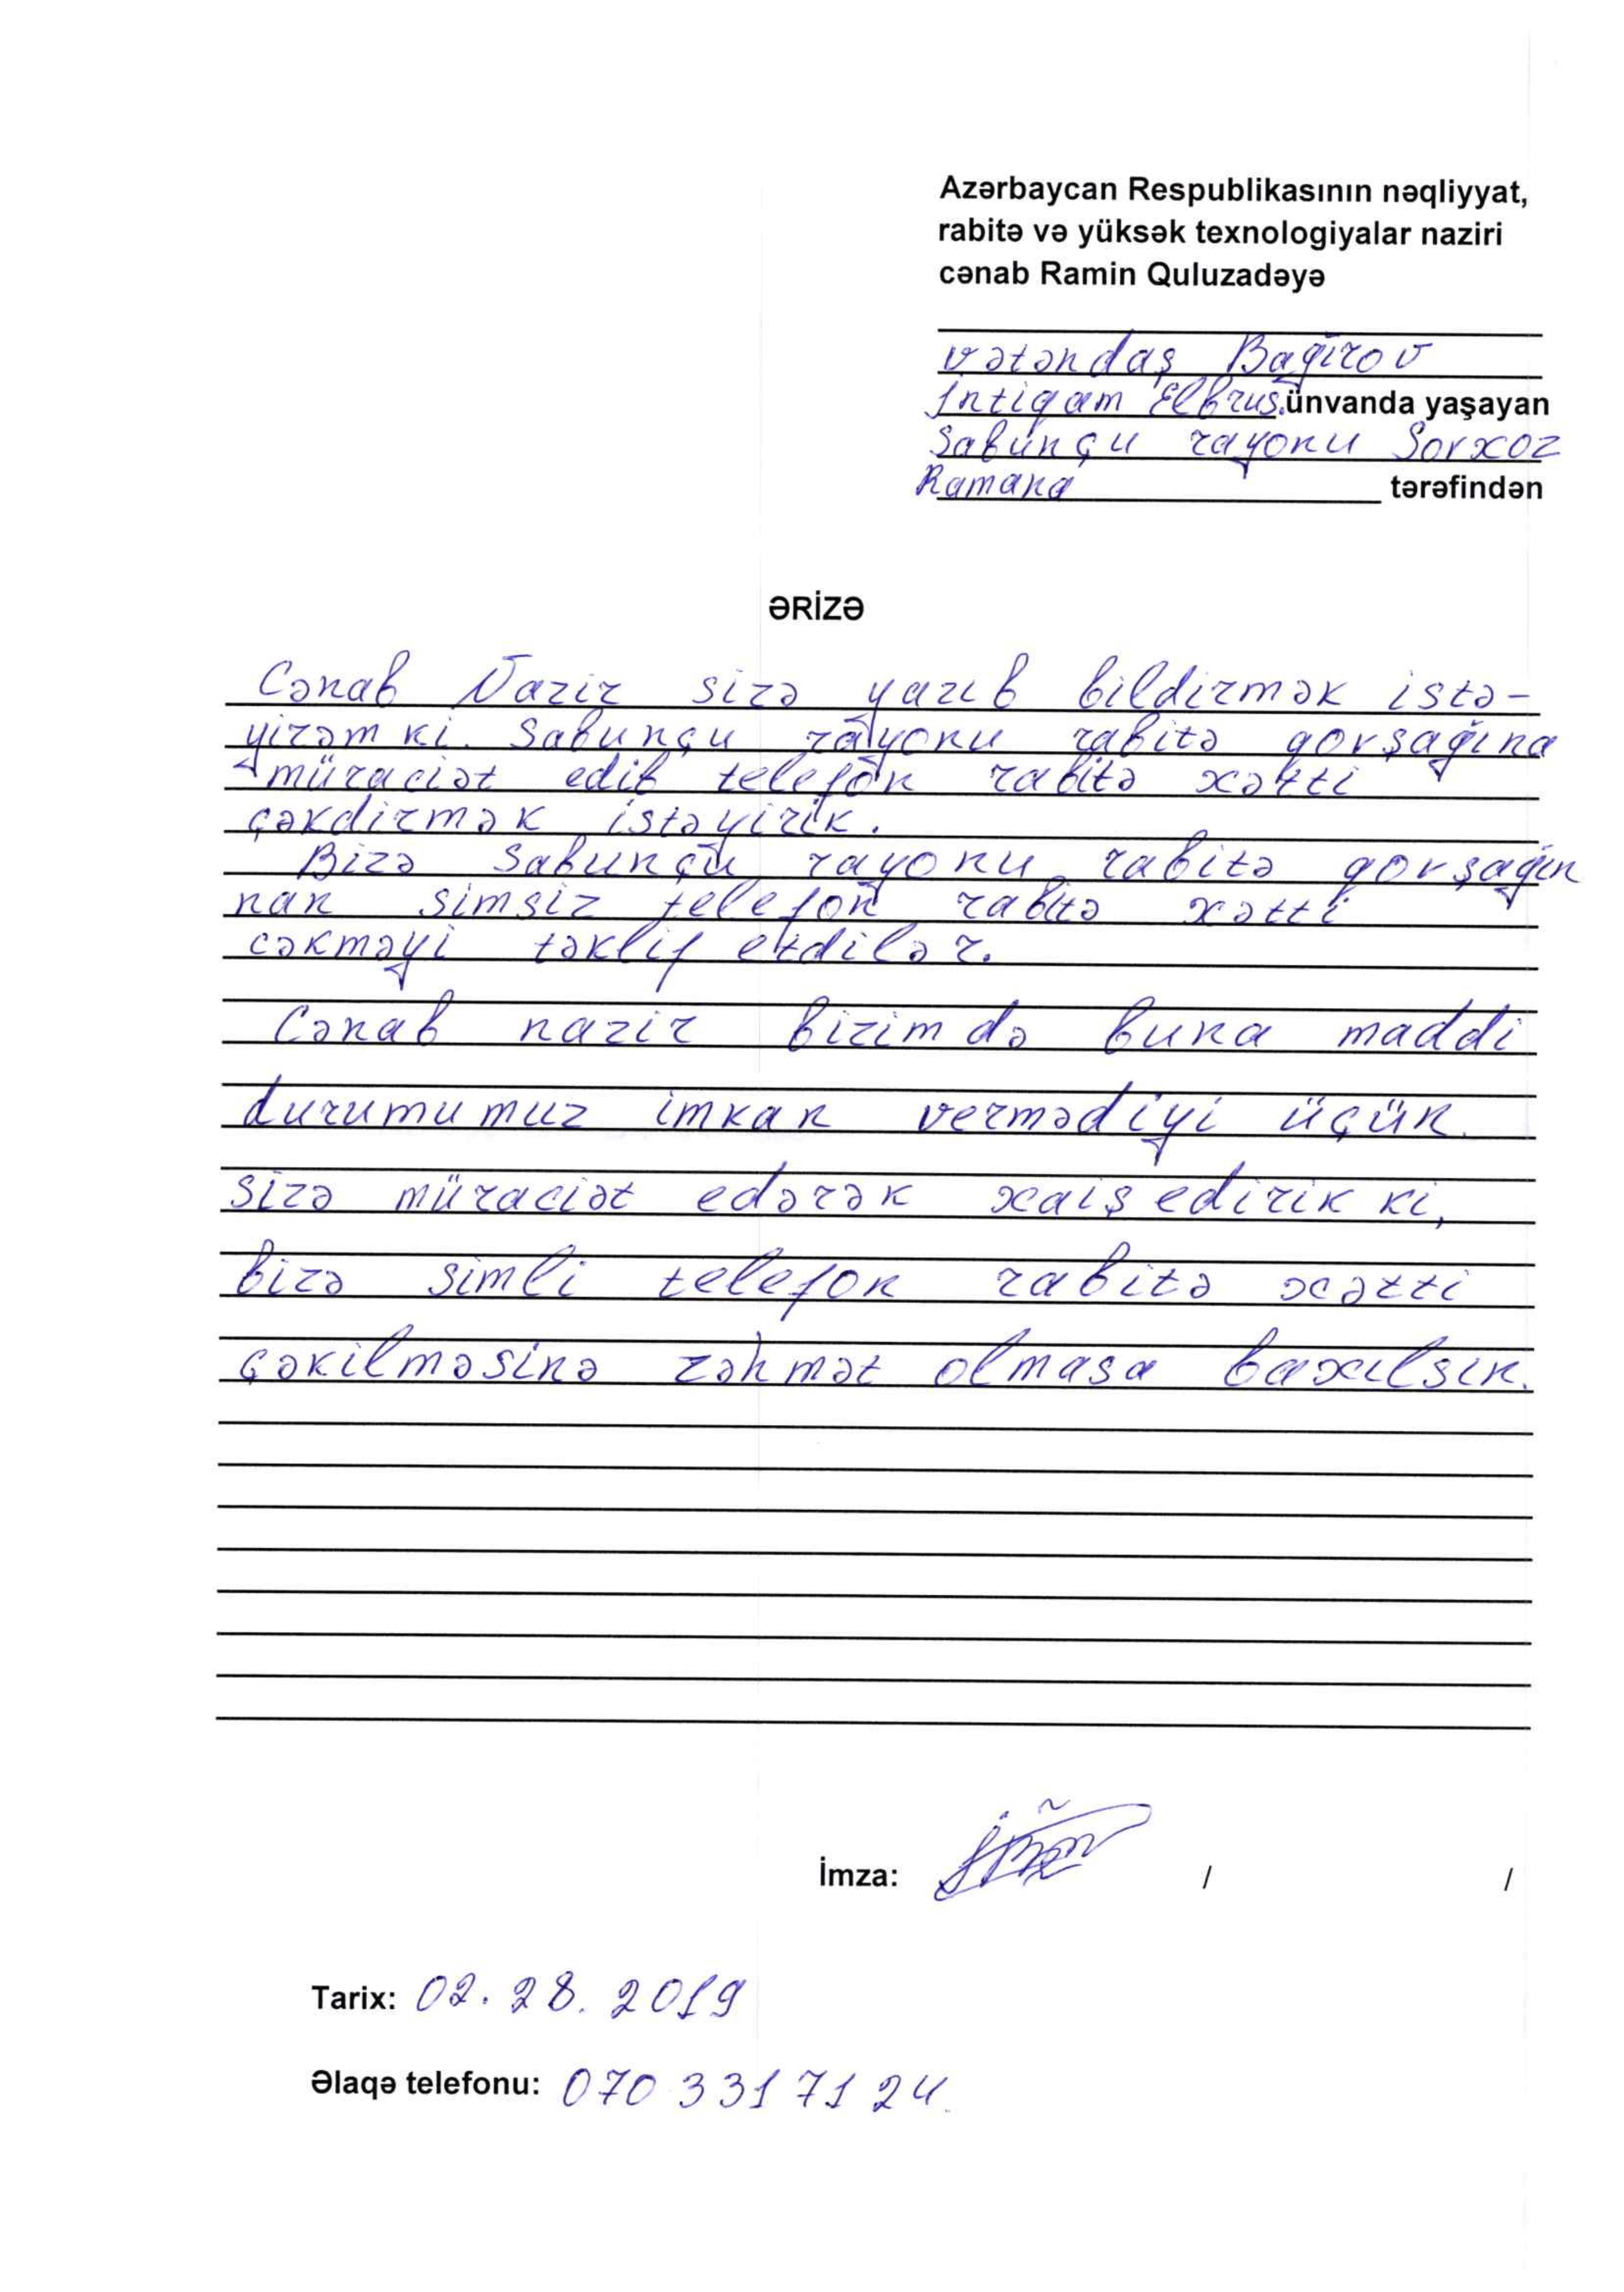 Azərbaycan Respublikasının nəqliyyat,
rabitə və yüksək texnologiyalar naziri
cənab Ramin Quluzadəyə
vətəndaş Bağırov
İntiqam Elbrus.ünvanda yaşayan
Sabunçu rayonu Sovxoz
Ramana tərəfindən
ƏRİZƏ
Cənab Nazir sizə yazıb bildirmək istə-
yirəm ki. Sabunçu rayonu rabitə qovşağına
müraciət edib telefon rabitə xətti
çəkdirmək istəyirik.
Bizə Sabunçu rayonu rabitə qovşağın
nan simsiz telefon rabitə xətti
cəkməyi təklif etdilər.
Cənab nazir bizim də buna maddi
durumumuz imkan vermədiyi üçün
sizə müraciət edərək xaiş edirik ki,
bizə simli telefon rabitə xətti
çəkilməsinə zəhmət olmasa baxılsın.
İmza: / /
Tarix: 02.28.2019
Əlaqə telefonu: 070 331 71 24